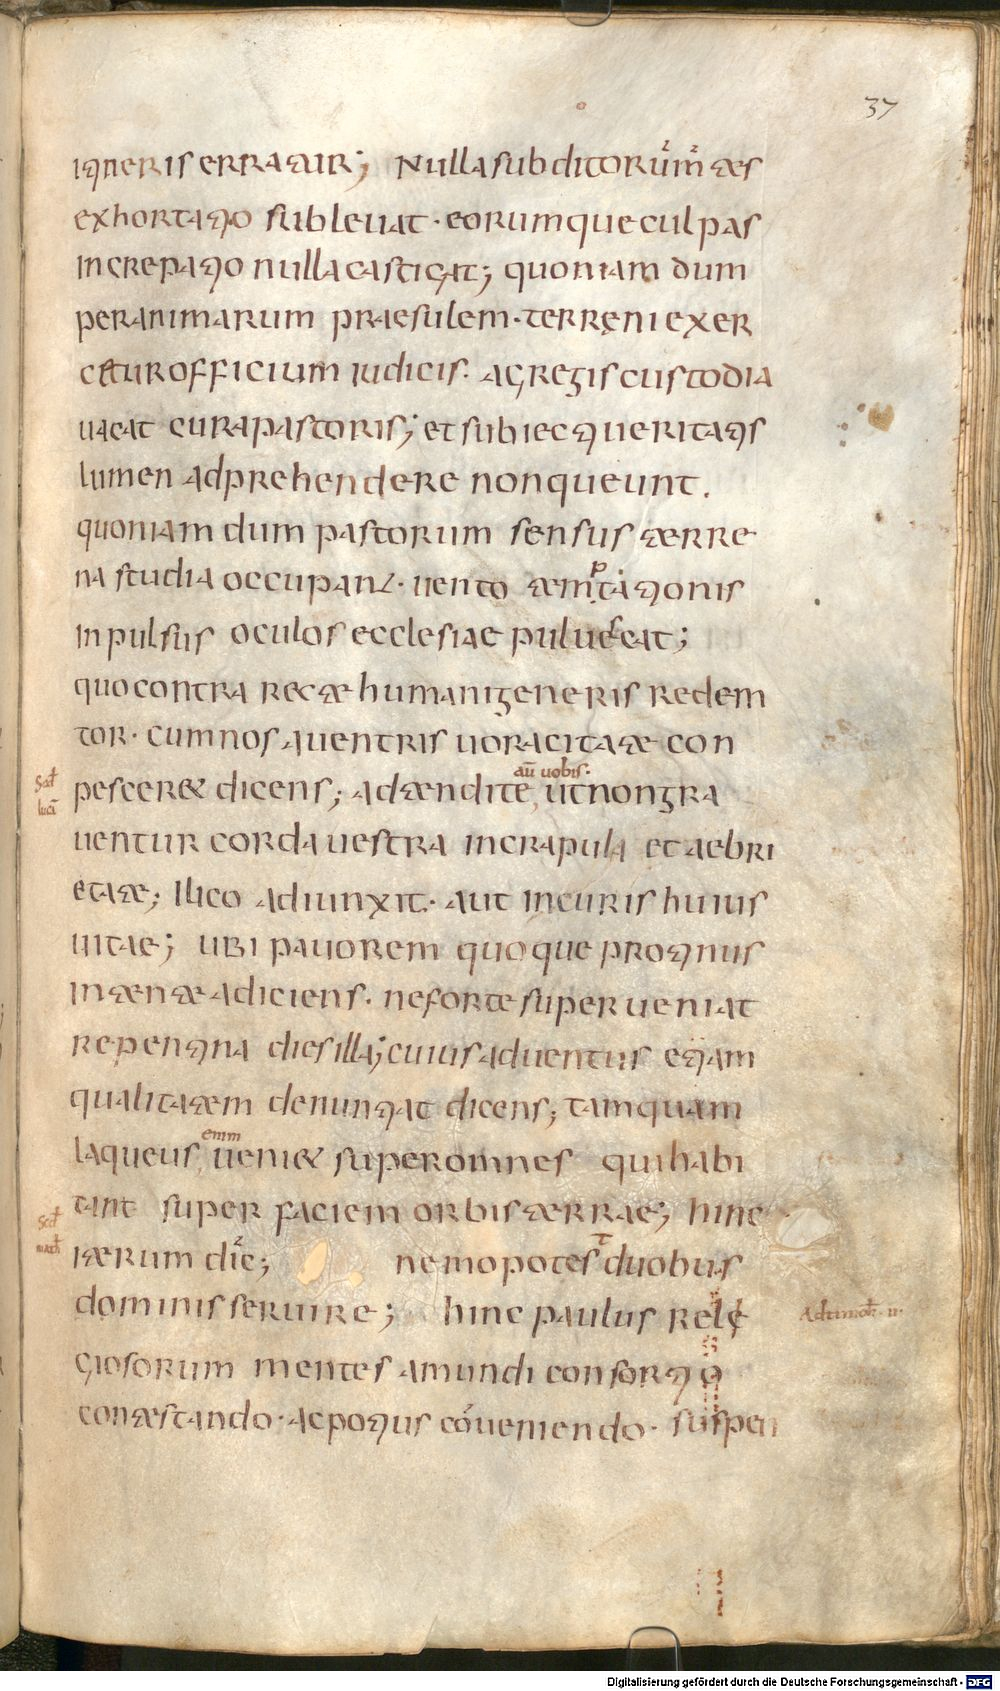 37
itineris erratur; Nulla subditorum mentes
exhortatio sublevat. eorumque culpas
increpatio nulla castigat; quoniam dum
per animarum praesulem. terreni exer
cetur officium iudicis. a gregis custodia
vacat cura pastoris; et subiecti veritatis
lumen adprehendere nonqueunt.
quoniam dum pastorum sensus terre
na studia occupant. vento temptationis
inpulsus oculos ecclesiae pulvescat;
quo contra recte humani generis redem
tor. cum nos a ventris voracitate con
au uobis.
pesceret dicens; adtendite ut non gra
ventur corda vestra in crapula et aebri
etate; Ilico adiunxit. aut in curis huius
vitae; ubi pavorem quoque protinus
intente adiciens. ne forte superveniat
repentina dies illa; cuius adventus etiam
qualitatem denuntiat dicens; tamquam
enim
laqueus veniet super omnes qui habi
tant super faciem orbis terrae; hinc
iterum dic; nemo potest duobus
dominis servire; hinc paulus reli
Ad timoth. ii.
giosorum mentes a mundi consortio
contestando. ac potius conveniendo. suspen
Digitalisierung gefördert durch die Deutsche Forschungsgemeinschaft - DFG